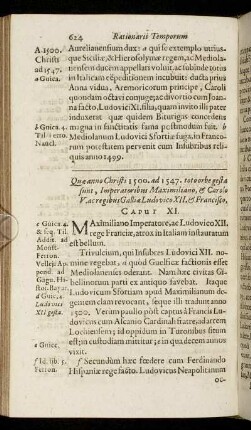 624 Rationarii Temporum
A 1500.
Christi
ad 1547.
a Guica.
Aurelianensium dux: a quise extemplo utrius-
que Siciliæ, & Hierosolymæ regem, ac Mediola-
nensem ducem appellari voluit, ac subinde totus
in Italicam expeditionem incubuit: ducta prius
Anna vidua, Aremoricorum principe, Caroli
quondam octavi conjuge; ac divortio cum Joan-
na facto, Ludovici XI. filia, quam invito illi pater
induxerat quæ quidem Biturigis concedens
magna in sanctitatis fama postmodum fuit. b
Mediolanum Ludovici Sfortia fuga, in Franco-
rum potestatem pervenit cum Insubribus reli-
quis anno 1499.
b Guica. 4.
Nancl.
Quæ anno Christi 1500. ad 1547. toto orbe gesta
sint, Imperatoribus Maximiliano, & Carolo
V. ac regibus Galliæ Ludovico XII, & Francisco,
CAPUT XI.
MAximiliano Imperatore, ac Ludovico XII.
rege Franciæ, atrox in Italiam instauratum
est bellum.
Trivulcium, qui Insubres Ludovici XII. no-
mine regebat, e quod Guelficæ factionis esset
Mediolanenses oderant. Nam hæc civitas Gi-
bellinorum parti ex antiquo favebat. Itaque
Ludovicum Sfortiam apud Maximilianum de-
gentem clam revocant, seque illi tradunt anno
1500. Verùm paullo pòst captus à Francis Lu-
dovicus cum Ascanio Cardinali fratre, adarcem
Lochiensem; id oppidum in Turonibus situm
est custodiam mittitur; e in qua decem annos
vixit.
f Secundùm hæc fœdere cum Ferdinando
Hispaniæ rege facto. Ludovicus Neapolitanum
oc-
c Guica 4.
& seq. Til.
Addit. ad
Monst.
Ferron.
gand. ad
Gagn. Hi-
d Guic, 4.
Ludovici
XII gesta.
e Guica.
f Id. lib. 5.
Ferron.